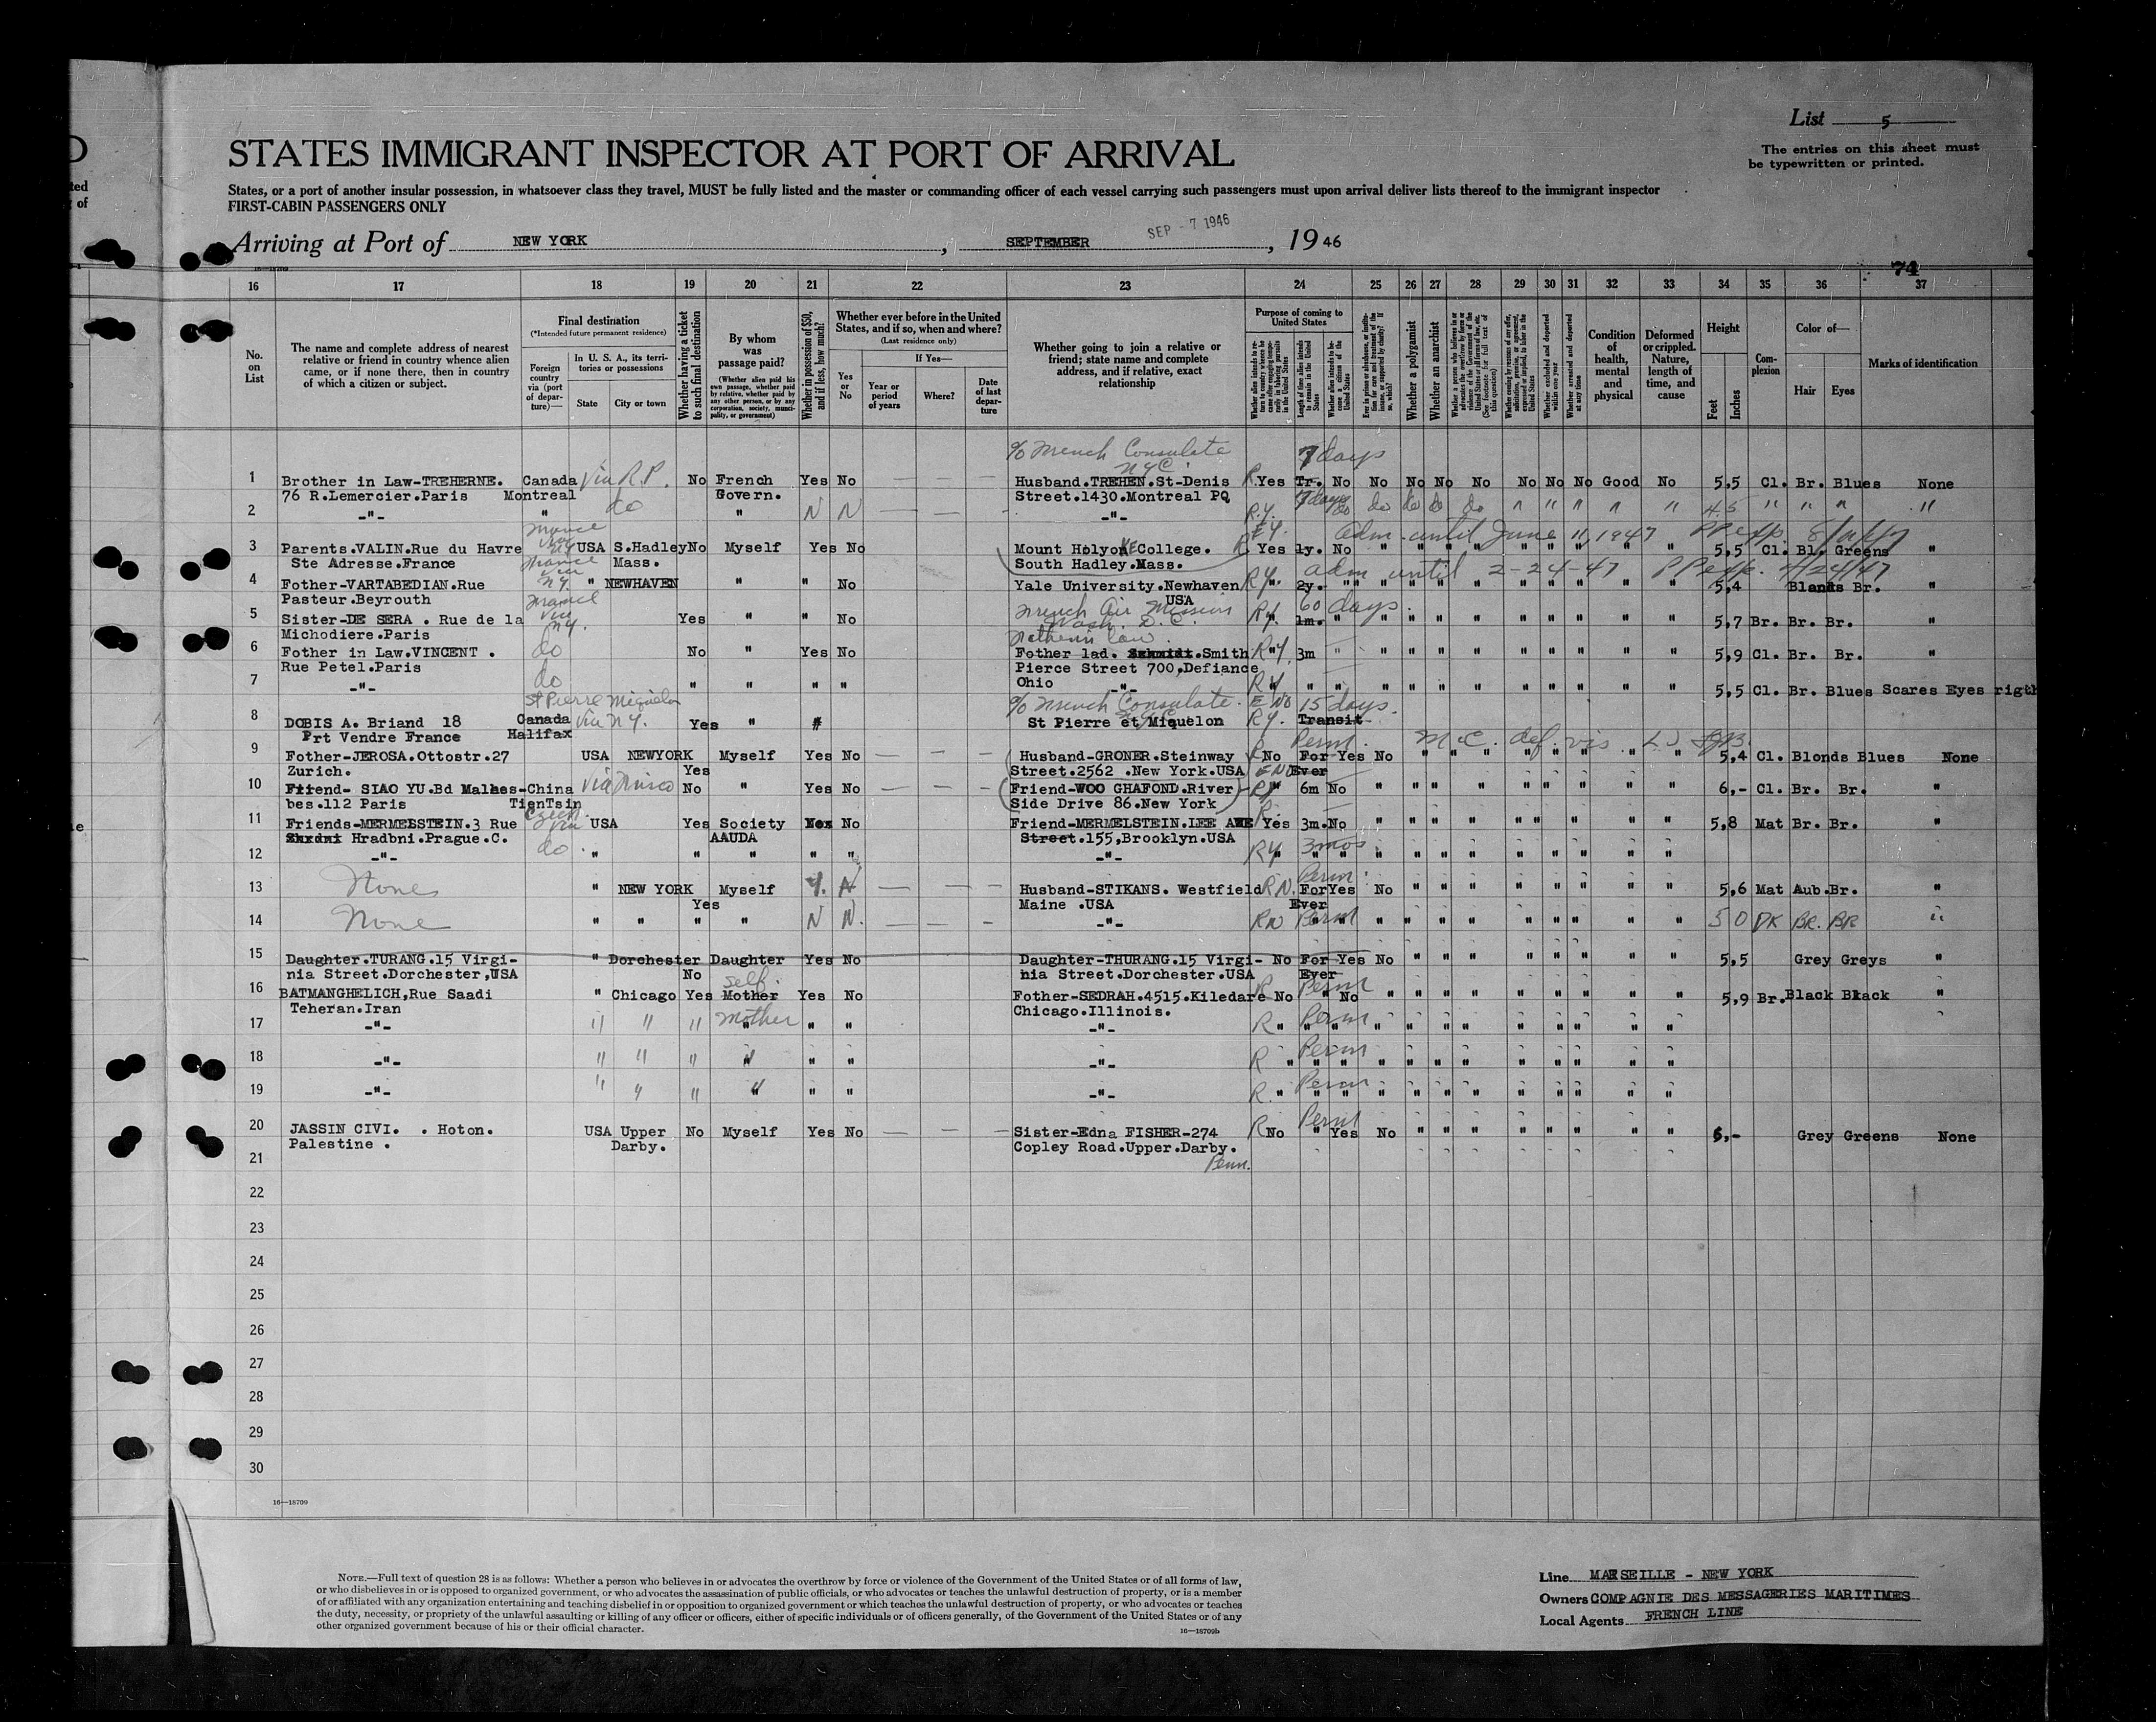 List 5
The entries on this sheet must
be typewritten or printed.
STATES IMMIGRANT INSPECTOR AT PORT OF ARRIVAL
States, or a port of another insular possession, in whatsoever class they travel, MUST be fully listed and the master or commanding officer of each vessel carrying such passengers must upon arrival deliver lists thereof to the immigrant inspector
FIRST-CABIN PASSENGERS ONLY
Arriving at Port of NEW YORK , SEPTEMBER SEP - 7 1946 , 19 46
74
16 17 18 19 20 21 22 23 24 25 26 27 28 29 30 31 32 33 34 35 36 37
No. on List
The name and complete address of nearest relative or friend in country whence alien came, or if none there, then in country of which a citizen or subject.
Final destination
(*Intended future permanent residence)
Foreign country via (port of departure)—
In U. S. A., its territories or possessions
State City or town
Whether having a ticket to such final destination
By whom was passage paid?
(Whether alien paid his own passage, whether paid by relative, whether paid by any other person, or by any corporation, society, municipality, or government)
Whether in possession of $50, and if less, how much?
Whether ever before in the United States, and if so, when and where?
(Last residence only)
Yes or No
If Yes—
Year or period of years Where? Date of last departure
Whether going to join a relative or friend; state name and complete address, and if relative, exact relationship
Purpose of coming to United States
Whether a polygamist
Whether an anarchist
Condition of health, mental and physical
Deformed or crippled. Nature, length of time, and cause
Height
Feet Inches
Complexion
Color of—
Hair Eyes
Marks of identification
c/o French Consulate 7 days
NYC
1 Brother in Law-TREHERNE. Canada via R.P. No French Yes No — — — Husband.TREHEN.St-Denis R Yes Tr. No No No No No No No No Good No 5,5 Cl. Br. Blues None
76 R.Lemercier.Paris Montreal Govern. Street.1430.Montreal PQ
2 -"- " do " N N — — — -"- R.Y. 7 days do do do do do " " " " " 4.5 " " " "
France via NY E Y. adm. until June 11, 1947 PP exp.
3 Parents.VALIN.Rue du Havre USA S.Hadley No Myself Yes No Mount HolyoKE College. R Yes 1y. No " " " " " " " " " 5,5 Cl. Bl. Greens "
Ste Adresse.France Mass. South Hadley.Mass.
France via N.Y. adm until 2-24-47 PP exp. 4/24/47
4 Fother-VARTABEDIAN.Rue " NEWHAVEN " " No Yale University.Newhaven RY. " 2y. " " " " " " " " " " 5,4 Blonds Br.
Pasteur.Beyrouth USA
France via N.Y. French Air Mission 60 days.
Wash. D.C.
5 Sister-DE SERA . Rue de la Yes " " No RY. 1m. " " " " " " " " " " 5,7 Br. Br. Br. "
Michodiere.Paris
6 Fother in Law.VINCENT . do No " Yes No Fother lad. Smith RY. 3m " " " " " " " " " " 5,9 Cl. Br. Br. "
Rue Petel.Paris Pierce Street 700,Defiance
7 -"- do " " " " Ohio -"- RY " " " " " " " " " " " 5,5 Cl. Br. Blues Scares Eyes rigth
St Pierre Miquelon c/o French Consulate. E No 15 days.
8 DOBIS A. Briand 18 Canada via N.Y. Yes " # St Pierre et Miquelon RY. Transit
Prt Vendre France Halifax
Perm. M.C. def. vis.
9 Fother-JEROSA.Ottostr.27 USA NEWYORK Myself Yes No — — — Husband-GRONER.Steinway R No For Yes No " " " " " " " " 5,4 Cl. Blonds Blues None
Zurich. Yes Street.2562 .New York.USA Ever
10 Friend- SIAO YU.Bd Malhes-China via Frisco No " Yes No — — — Friend-WOO GHAFOND.River RY 6m No " " " " " " " " " 6,- Cl. Br. Br. "
bes.112 Paris TienTsin Side Drive 86.New York
11 Friends-MERMELSTEIN.3 Rue Czech. via USA Yes Society No Friend-MERMELSTEIN.LEE AVE R. Yes 3m. No " " " " " " " " " 5,8 Mat Br. Br. "
Hradbni.Prague.C. AAUDA Street.155,Brooklyn.USA
12 -"- do " " " " " -"- RY 3mos. " " " " " " " " "
13 None " NEW YORK Myself Y. N — — — Husband-STIKANS. Westfield R N. Perm. For Yes No " " " " " " " " 5,6 Mat Aub.Br. "
Yes Maine .USA Ever
14 None " " " " N N. — — — -"- RN Perm " " " " " " " " " 5 0 DK BR. BR "
15 Daughter.TURANG.15 Virgi- " Dorchester Daughter Yes No Daughter-THURANG.15 Virgi- No For Yes No " " " " " " " " 5,5 Grey Greys "
nia Street.Dorchester,USA No nia Street.Dorchester.USA Ever
16 BATMANGHELICH,Rue Saadi " Chicago Yes Self Mother Yes No Fother-SEDRAH.4515.Kiledare R No Perm " No " " " " " " " " " 5,9 Br. Black Black "
Teheran.Iran Chicago.Illinois.
17 -"- " " " Mother " " -"- R " Perm " " " " " " " " " "
18 -"- " " " " " " -"- R " Perm " " " " " " " " " "
19 -"- " " " " " " -"- R. " Perm " " " " " " " " " "
20 JASSIN CIVI. . Hoton. USA Upper No Myself Yes No — — — Sister-Edna FISHER-274 R No Perm " Yes No " " " " " " " " 6,- Grey Greens None
Palestine . Darby. Copley Road.Upper.Darby.
21 Penn.
22
23
24
25
26
27
28
29
30
16—18709
NOTE.—Full text of question 28 is as follows: Whether a person who believes in or advocates the overthrow by force or violence of the Government of the United States or of all forms of law,
or who disbelieves in or is opposed to organized government, or who advocates the assassination of public officials, or who advocates or teaches the unlawful destruction of property, or is a member
of or affiliated with any organization entertaining and teaching disbelief in or opposition to organized government or which teaches the unlawful destruction of property, or who advocates or teaches
the duty, necessity, or propriety of the unlawful assaulting or killing of any officer or officers, either of specific individuals or of officers generally, of the Government of the United States or of any
other organized government because of his or their official character.
16—18709b
Line MARSEILLE - NEW YORK
Owners COMPAGNIE DES MESSAGERIES MARITIMES
Local Agents FRENCH LINE